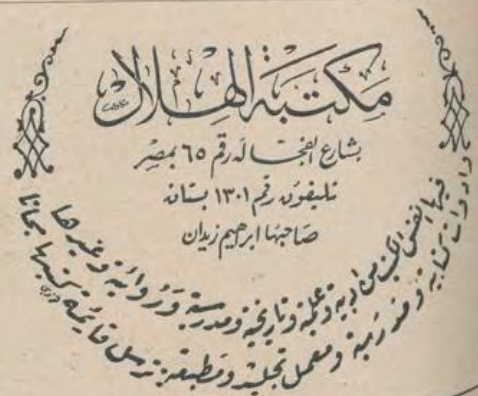 مكتبة الهلال
بشارع الفجاله رقم ٦٥ بمصر
تليفون رقم ١٣٠١ بستان
صاحبها ابراهيم زيدان
فيها انفس الكتب من ادبية وعلمية وتاريخية ومدرسية وروائية وغيرها
وادوات كتابية ومدرسية ومعمل تجليد ومطبعة . ترسل قايمة كتبها مجانا